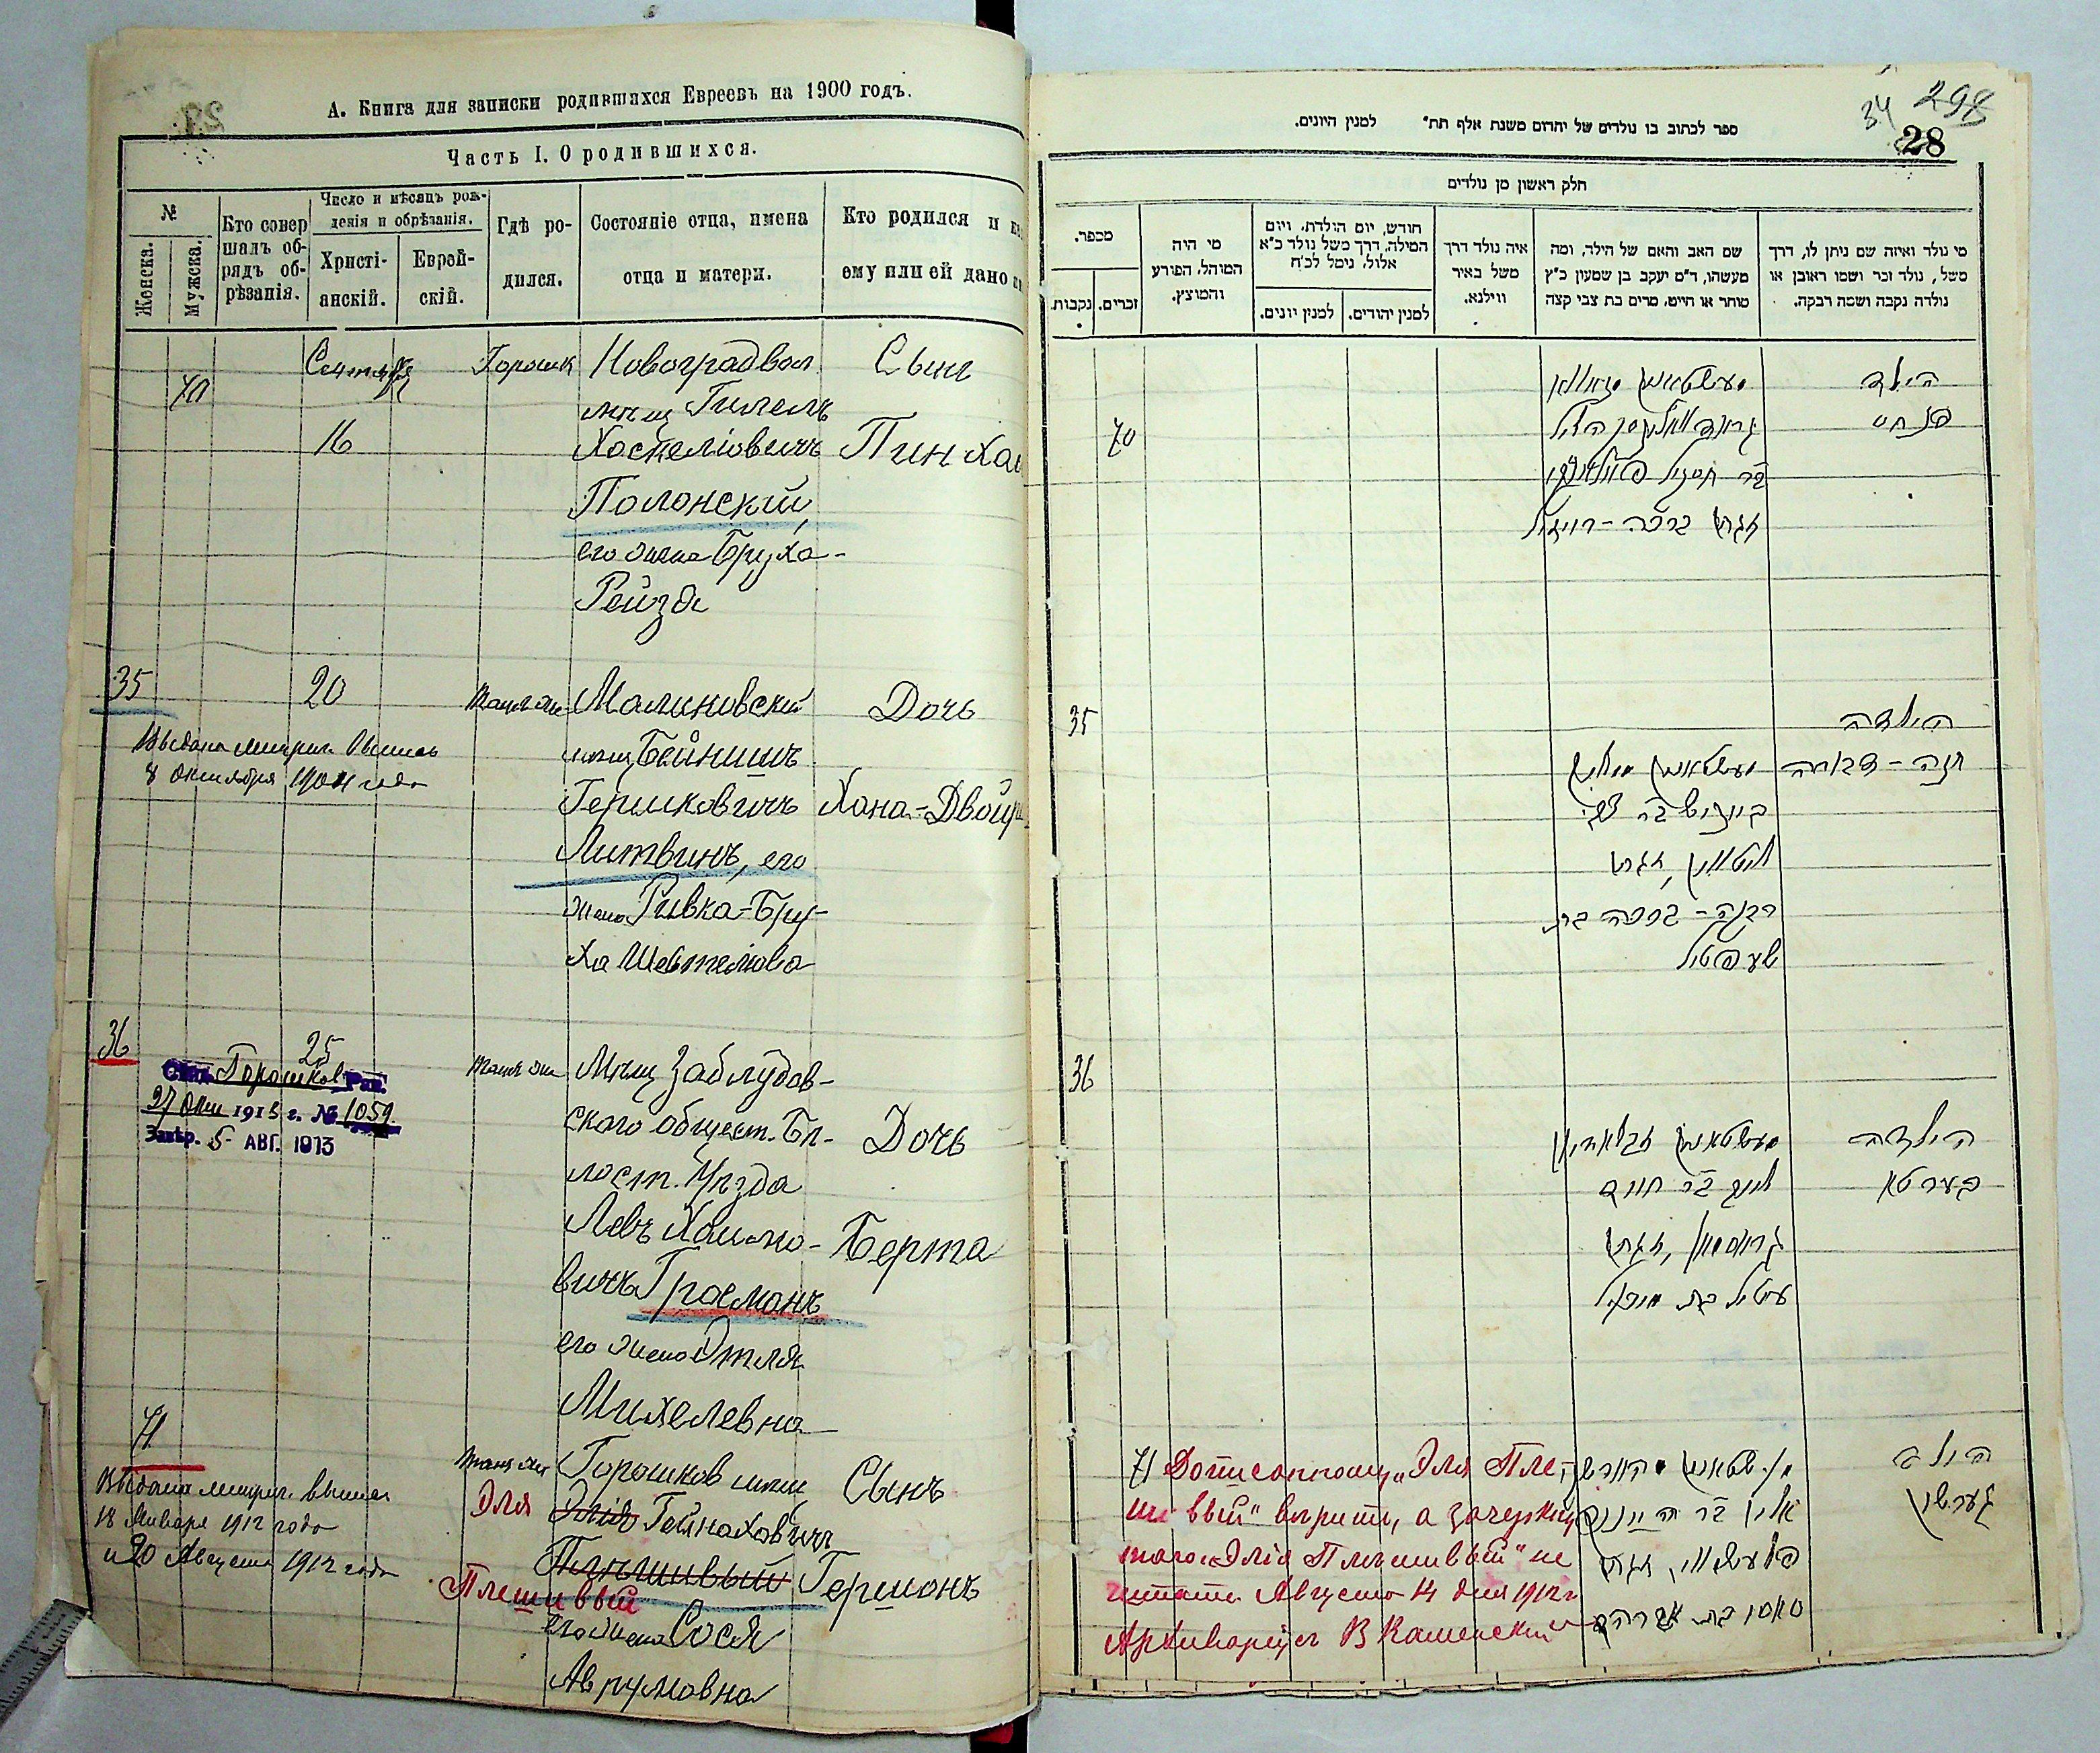 А. Книга для записки родившихся Евреевъ на 1900 годъ.
Часть I. О родившихся.
№
Женска.
Мужска.
Кто совер
шалъ об-
рядъ об-
рѣзанія.
Число и мѣсяцъ рож-
денія и обрѣзанія.
Христі-
анскій.
Еврей-
скій.
Гдѣ ро-
дился.
Состояніе отца, имена
отца и матери.
Кто родился и
ему или ей дано
70
Сентября
16
Горошк
Новоградвол
мѣщ Гилель
Хаскеліовичъ
Полонскій,
его жена Бруха-
Рейзя
Сынъ
Пинхас
35
20
Выдана метрич. выпись
8 октября 1904 года
тамъ же
Малиновскій
мѣщ Бейнишъ
Гершковичъ
Литвинъ, его
жена Ривка-Бру-
ха Шевтелова
Дочь
Хана-Двойр
36
25
Горошков Рав.
27 Окт 1913 г. № 1059
5 АВГ. 1913
тамъ же
Мѣщ Заблудов-
ского общест. Бѣ-
лост. Уѣзда
Левъ Хаимо-
вичъ Гросманъ
его жена Этля
Михелевна
Дочь
Берта
71
Выдана метрич. выпись
18 Января 1912 года
и 20 Августа 1912 года
тамъ же
Горошков мѣщ
Эля Элія Гейнаховичъ
Плѣшивый
Плешивый
его жена Сося
Аврумовна
Сынъ
Гершонъ
34 298
28
ספר לכתוב בו נולדים של יהדום משנת אלף תת״ למנין היונים.
חלק ראשון מן נולדים
מספר.
נקבות.
זכרים.
מי היה
המוהל, הפורע
והמוצץ.
חודש, יום הולדת, ויום
המילה, דרך משל נולד כ״א
אלול, נימל לכ״ח
למנין יונים.
למנין יהודים.
איה נולד דרך
משל באיר
ווילנא.
שם האב והאם של הילד, ומה
מעשהו, ד״ם יעקב בן שמעון כ״ץ
סוחר או חייט, מרים בת צבי קצה
מי נולד ואיזה שם ניתן לו, דרך
משל, נולד זכר ושמו ראובן או
נולדה נקבה ושמה רבקה.
70
הילד
פנחס
35
הילדה
חנה - דבורה
ביוניש בר צבי
ליטווין, זוגתו
רבקה - ברכה בת
שעפטיל
36
הילדה
בערטא
לייב בר חיים
גרוסמאן, זוגתו
עטיל בת מיכל
71
הילד
גערשון
סאסי בת אברהם
Дописанному „Эля Пле
шивый" вѣрить, а зачеркну
таго „Элія Плѣшивый" не
читать. Августа 14 дня 1912 г
Архиваріусъ В Каменскій